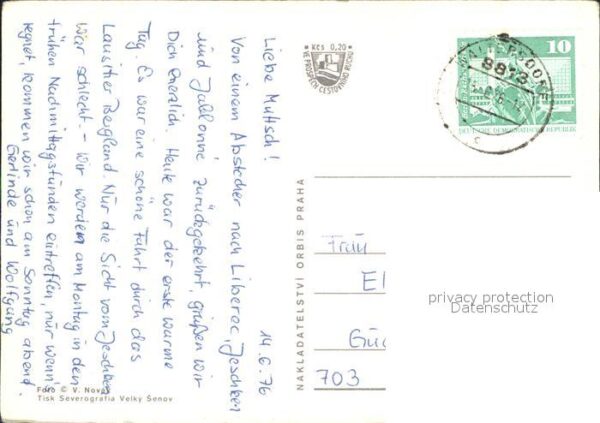 14.6.76
Liebe Muttsch!
Von einem Abstecher nach Liberec, Jeschken
und Jablonné zurückgekehrt, grüßen wir
Dich herzlich. Heute war der erste warme
Tag. Es war eine schöne Fahrt durch das
Lausitzer Bergland. Nur die Sicht vom Jeschken
war schlecht. – Wir werden am Montag in den
frühen Nachmittagsstunden eintreffen, nur wenn's
regnet, kommen wir schon am Sonntag abend.
Gerlinde und Wolfgang
Foto © V. Novák
Tisk Severografia Velký Šenov
NAKLADATELSTVÍ ORBIS PRAHA
Kčs 0,20
VE PROSPĚCH CESTOVNÍHO RUCHU
10
DEUTSCHE DEMOKRATISCHE REPUBLIK
Frau
El
703
privacy protection
Datenschutz